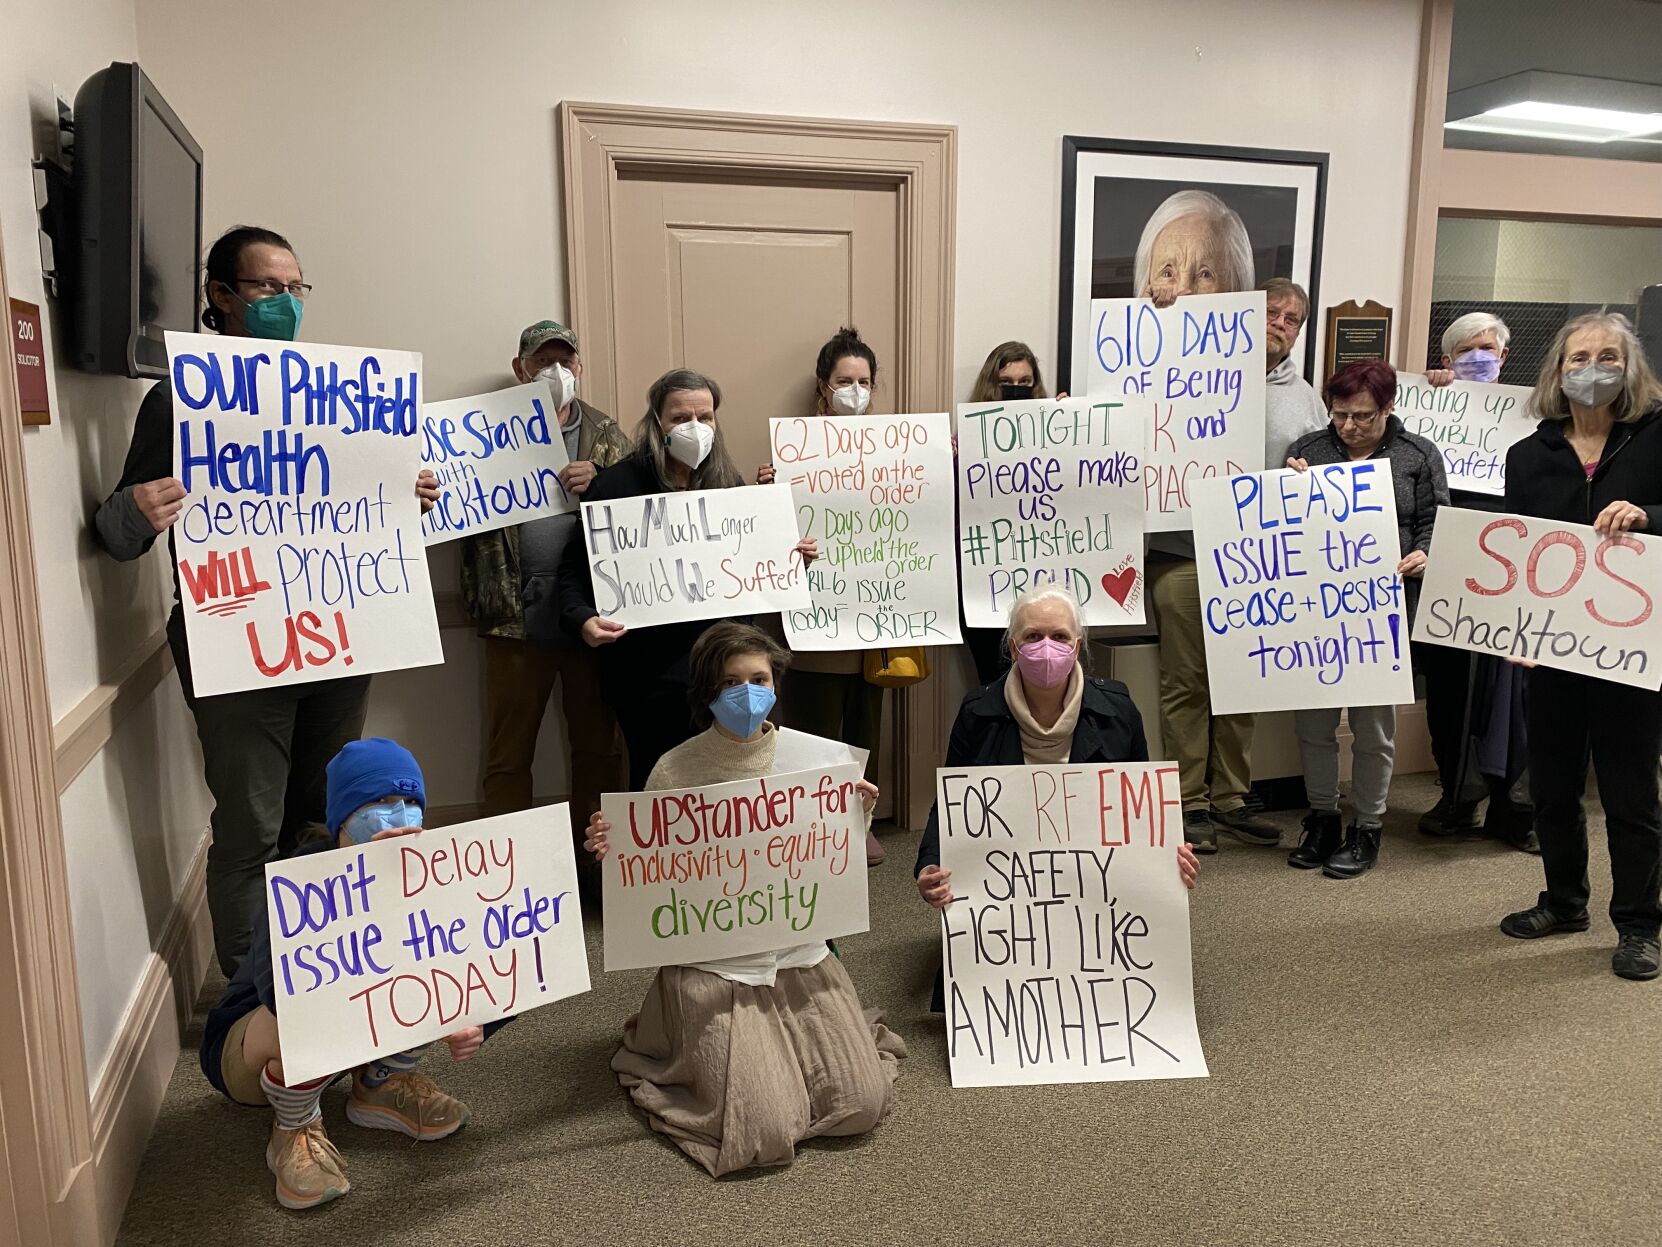 200
SOLICITOR
OUR Pittsfield
Health
department
WILL Protect
US!
Stand
with
How Much Longer
Should We Suffer?
62 Days ago
=Voted on the
order
Days ago
=Upheld the
order
6 ISSUE
Today= the
ORDER
TONIGHT
Please make
US
#Pittsfield
PROUD
Love
610 DAYS
OF Being
and
PLEASE
ISSUE the
cease+Desist
tonight!
up
Safety
SOS
Shacktown
Don't Delay
issue the order
TODAY!
UPStander for
inclusivity·equity
diversity
FOR RF EMF
SAFETY,
FIGHT LIKE
A MOTHER